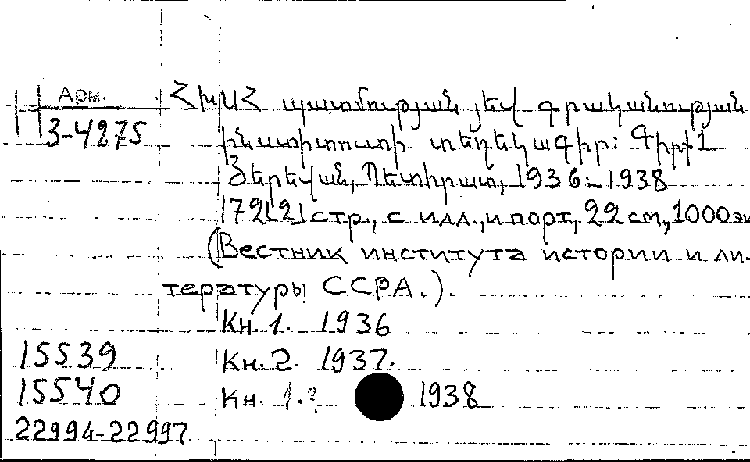 Арм. ՀԽՍՀ պատմության յեվ գրականության
3-4875 ինստիտուտի տեղեկագիր: Գիրք 1
Յերեվան, Պետհրատ, 1936-1938
172[2] стр., с илл., и порт., 22 см, 1000 эк
(Вестник института истории и ли-
тературы ССРА.).
Кн. 1. 1936
15539 Кн. 2. 1937.
15540 Кн. 1.? 1938
22994-22997